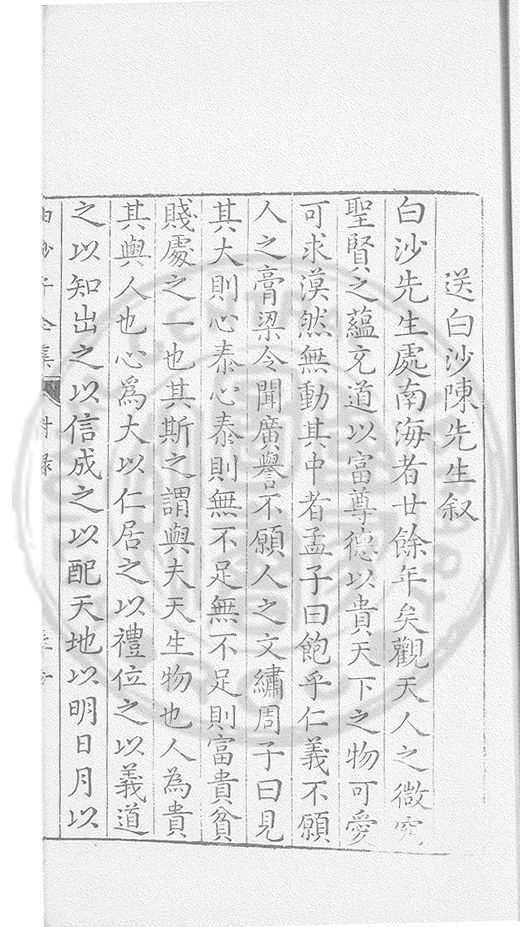 送白沙陳先生叙
白沙先生處南海者廿餘年矣觀天人之微究
聖賢之蘊充道以富尊德以貴天下之物可愛
可求漠然無動其中者孟子曰飽乎仁義不願
人之膏梁令聞廣譽不願人之文繡周子曰見
其大則心泰心泰則無不足無不足則富貴貧
賤處之一也其斯之謂與夫天生物也人為貴
其與人也心爲大以仁居之以禮位之以義道
之以知出之以信成之以配天地以明日月以
白沙子全集 附録